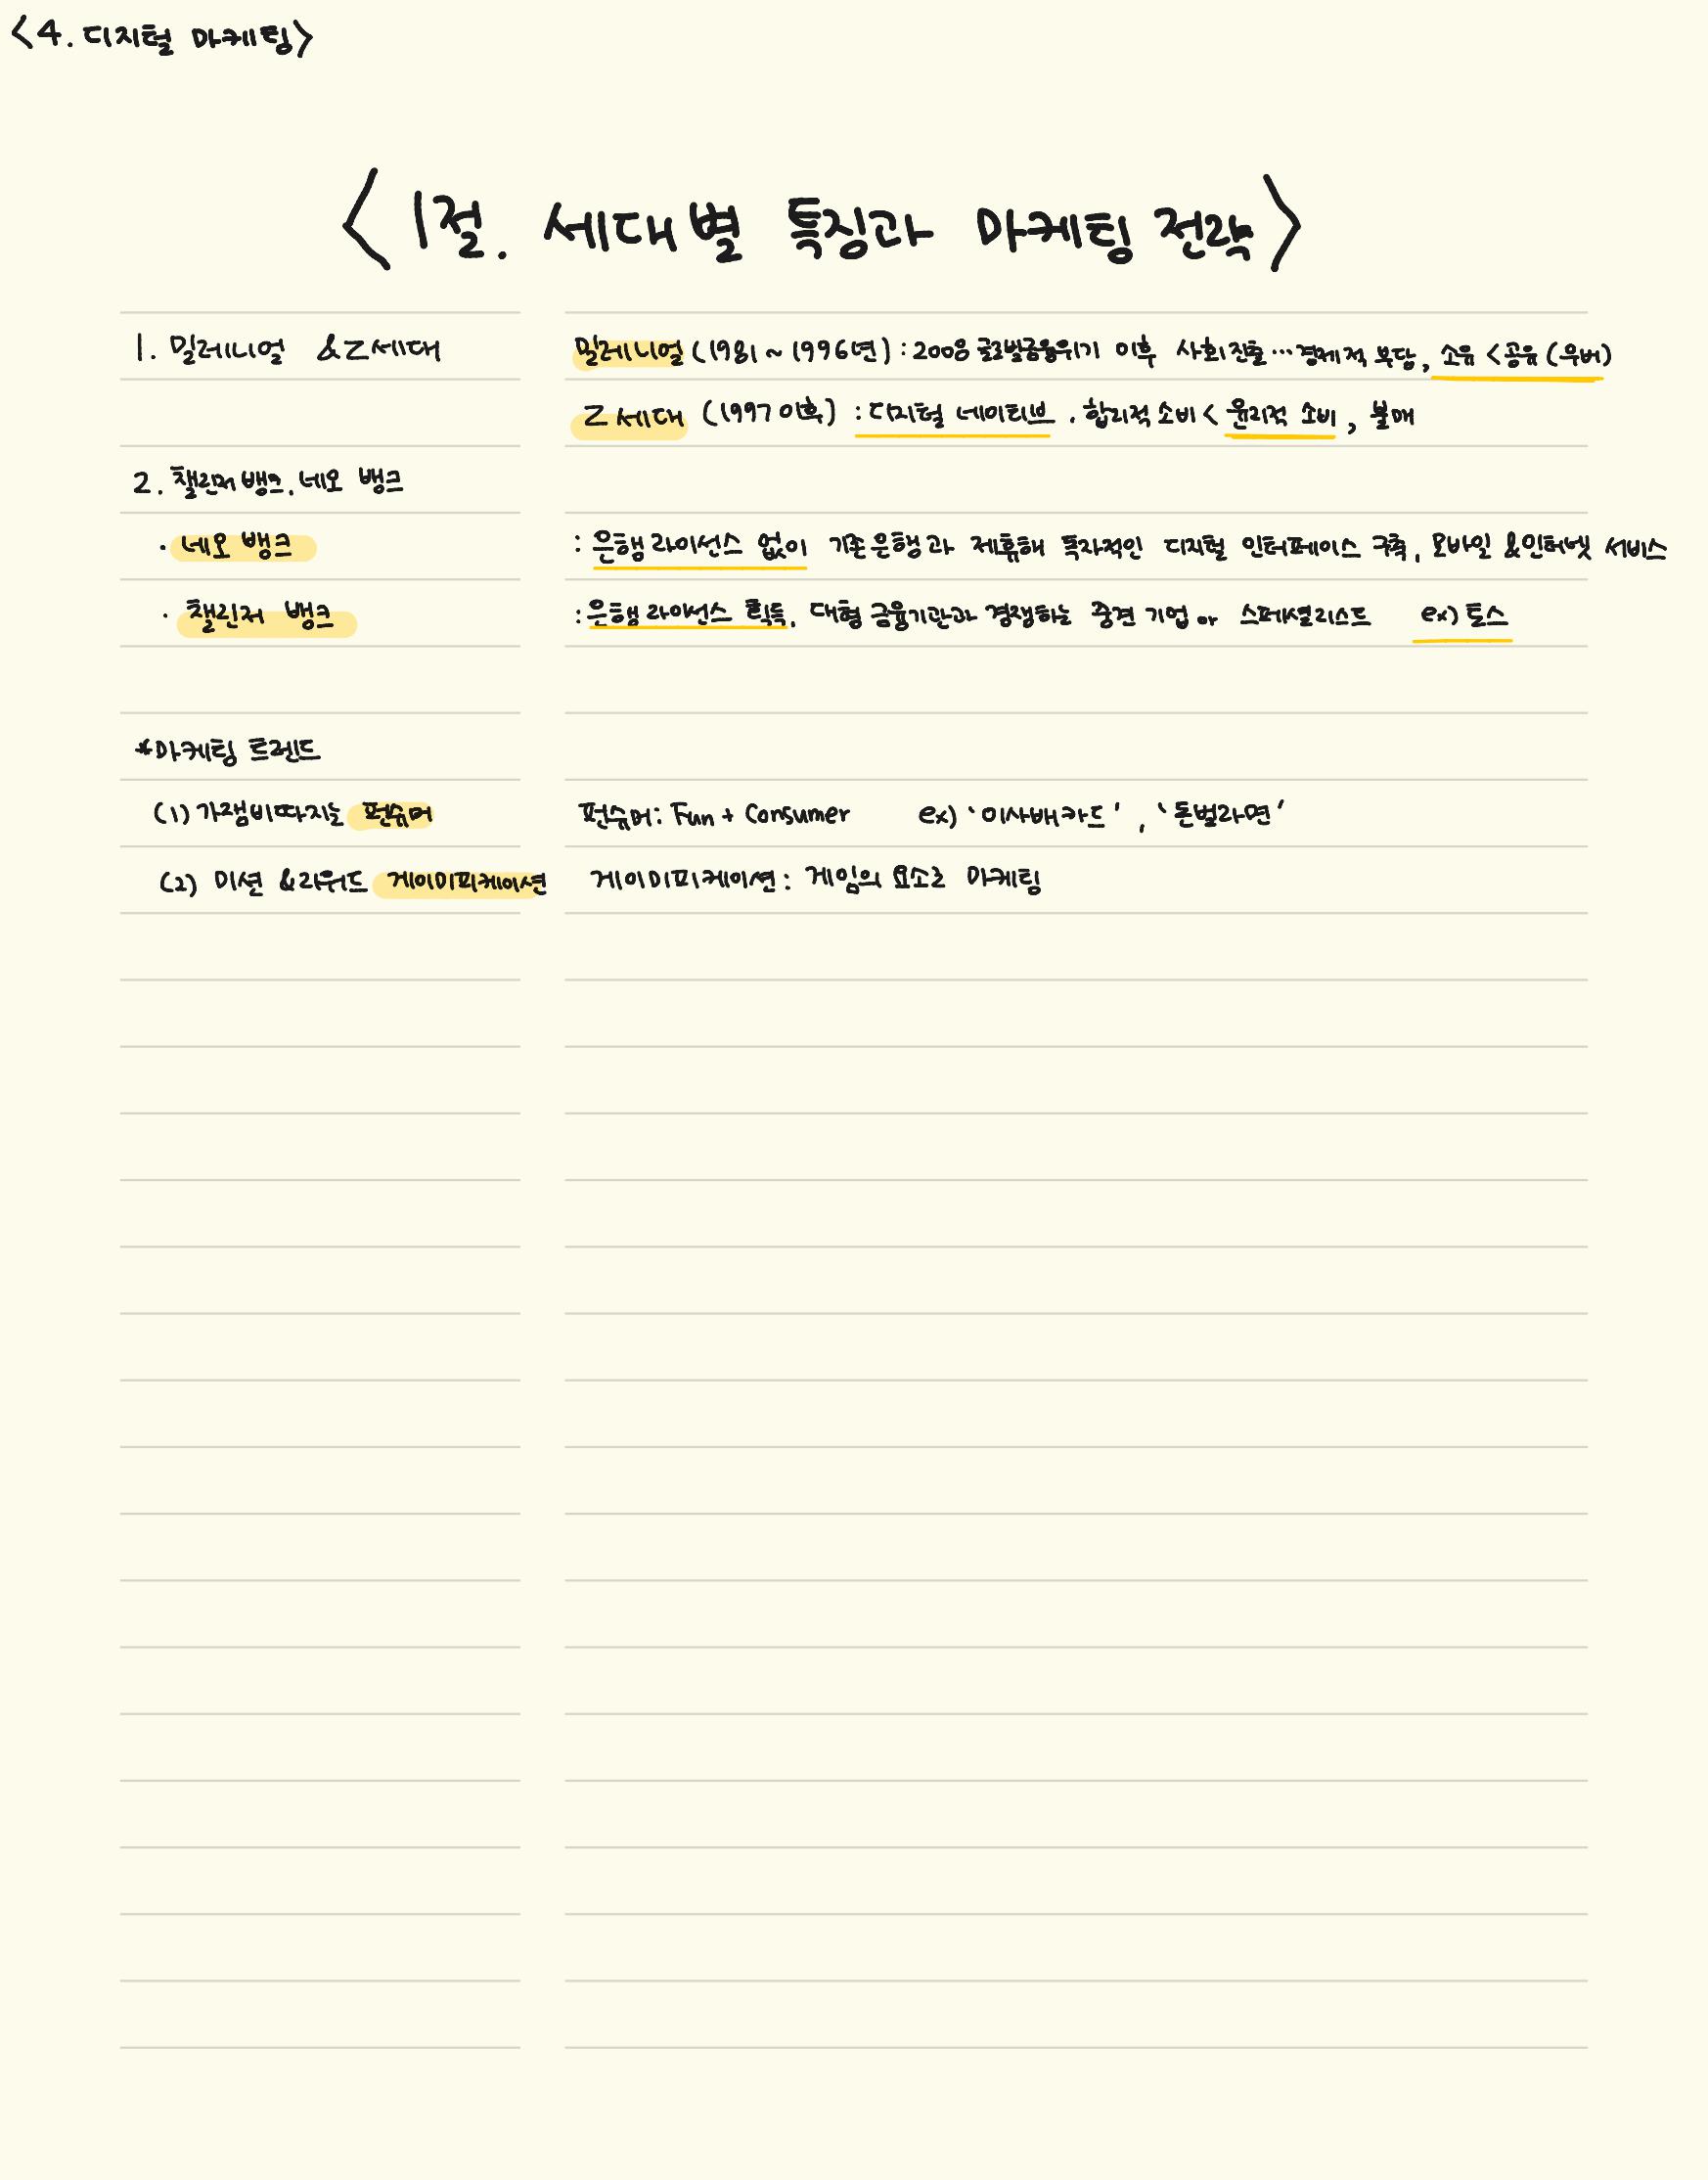 <4. 디지털 마케팅>
<1절. 세대별 특징과 마케팅 전략>
1. 밀레니얼 &Z세대
밀레니얼 (1981~1996년) : 2008 글로벌금융위기 이후 사회진출…경제적 부담, 소유<공유(우버)
Z세대 (1997이후) : 디지털 네이티브. 합리적 소비< 윤리적 소비, 불매
2. 챌린저 뱅크. 네오 뱅크
· 네오 뱅크 : 은행 라이선스 없이 기존 은행과 제휴해 독자적인 디지털 인터페이스 구축, 모바일 &인터넷 서비스
· 챌린저 뱅크 : 은행 라이선스 획득, 대형 금융기관과 경쟁하는 중견 기업 or 스페셜리스트 ex) 토스
*마케팅 트렌드
(1) 가잼비따지는 펀슈머 펀슈머: Fun + Consumer ex) '이사배카드', '돈벌라면'
(2) 미션 &리워드 게이미피케이션 게이미피케이션: 게임의 요소로 마케팅